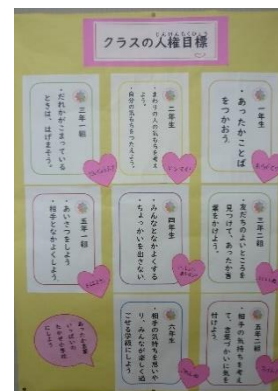 じんけんもくひょう
クラスの人権目標
一年生
・あったかことば
をつかおう。
二年生
・まわりの人の気もちを考え
よう。
・自分の気もちをつたえよう。
三年一組
・だれかがこまっている
ときは、はげまそう。
三年二組
・友だちのよいところを
見つけて、あったか言
葉をかけよう。
四年生
・みんなとなかよくする
・ちょっかいを出さない。
五年一組
・あいさつをしよう
・相手となかよくしよう
五年二組
・相手の気持ちを考え
て、言葉づかいに気を
付けよう。
六年生
・相手の気持ちを思いや
り、みんなが楽しく過
ごせる学級にしよう
あったか言葉
いっぱいの
にしよう